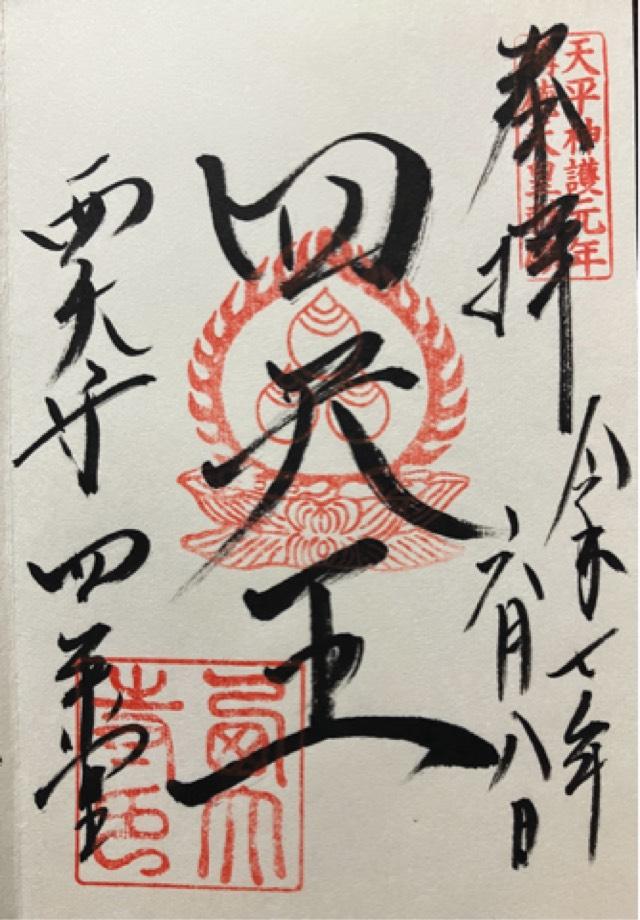 天平神護元年
稱徳天皇
奉拝
令和七年
六月八日
四天王
西大寺 四王堂
西大寺印